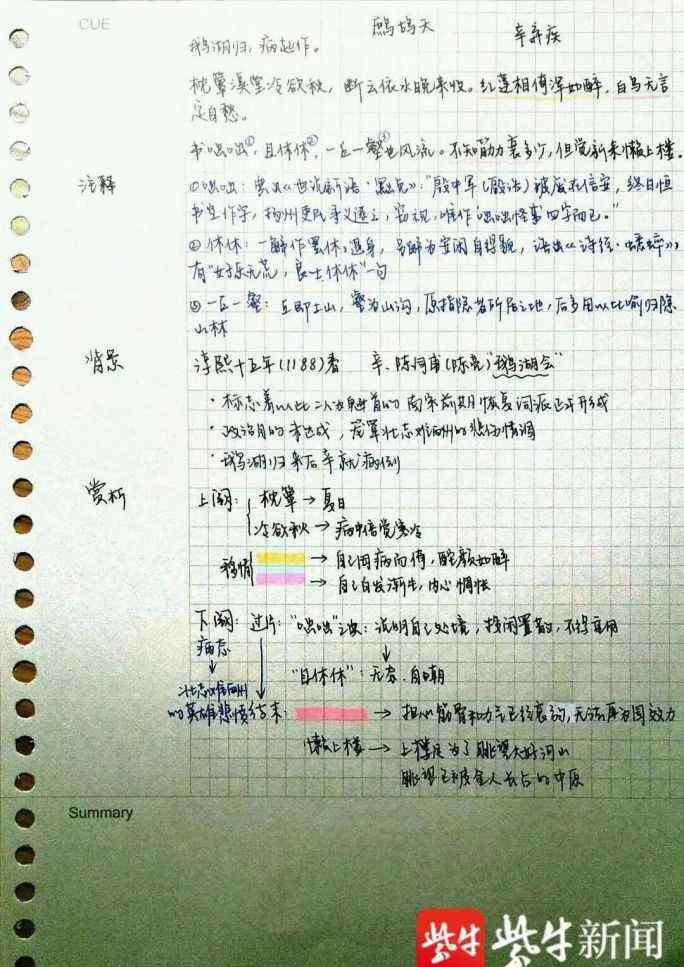 CUE
鹧鸪天 辛弃疾
鹅湖归，病起作。
枕簟溪堂冷欲秋，断云依水晚来收。红莲相倚浑如醉，白鸟无言
定自愁。
书咄咄①，且休休②，一丘一壑③也风流。不知筋力衰多少，但觉新来懒上楼。
注释
①咄咄：出《世说新语·黜免》："殷中军(殷浩)被废在信安，终日恒
书空作字，扬州吏民寻义逐之，窃视，唯作'咄咄怪事'四字而已。"
②休休：一解作罢休，退身，另解为安闲自得貌，语出《诗经·蟋蟀》，
有"好乐无荒，良士休休"一句
③一丘一壑：丘即土山，壑为山沟，原指隐者所居之地，后多用以比喻归隐
山林
背景 淳熙十五年(1188)春 辛、陈同甫(陈亮)"鹅湖会"
·标志着以此二次为首的南宋前期恢复词派已开形成
·政治目的未达成，笼罩壮志难酬的悲伤情调
·鹅湖归来后辛就病倒
赏析
上阕： 枕簟→夏日
冷欲秋→病中倍觉寒冷
移情 →自己因病而倚，酡颜如醉
→自己白发渐生，内心惆怅
下阕：过片："咄咄"之典：说明自己处境，投闲置散，不得重用
病态
"且休休"：无奈、自嘲
壮志难酬
的英雄悲愤 结末： →担心筋骨和力气已经衰弱，无法再为国效力
懒上楼→上楼是为了眺望大好河山
眺望已被金人长占的中原
Summary
紫牛 紫牛新闻